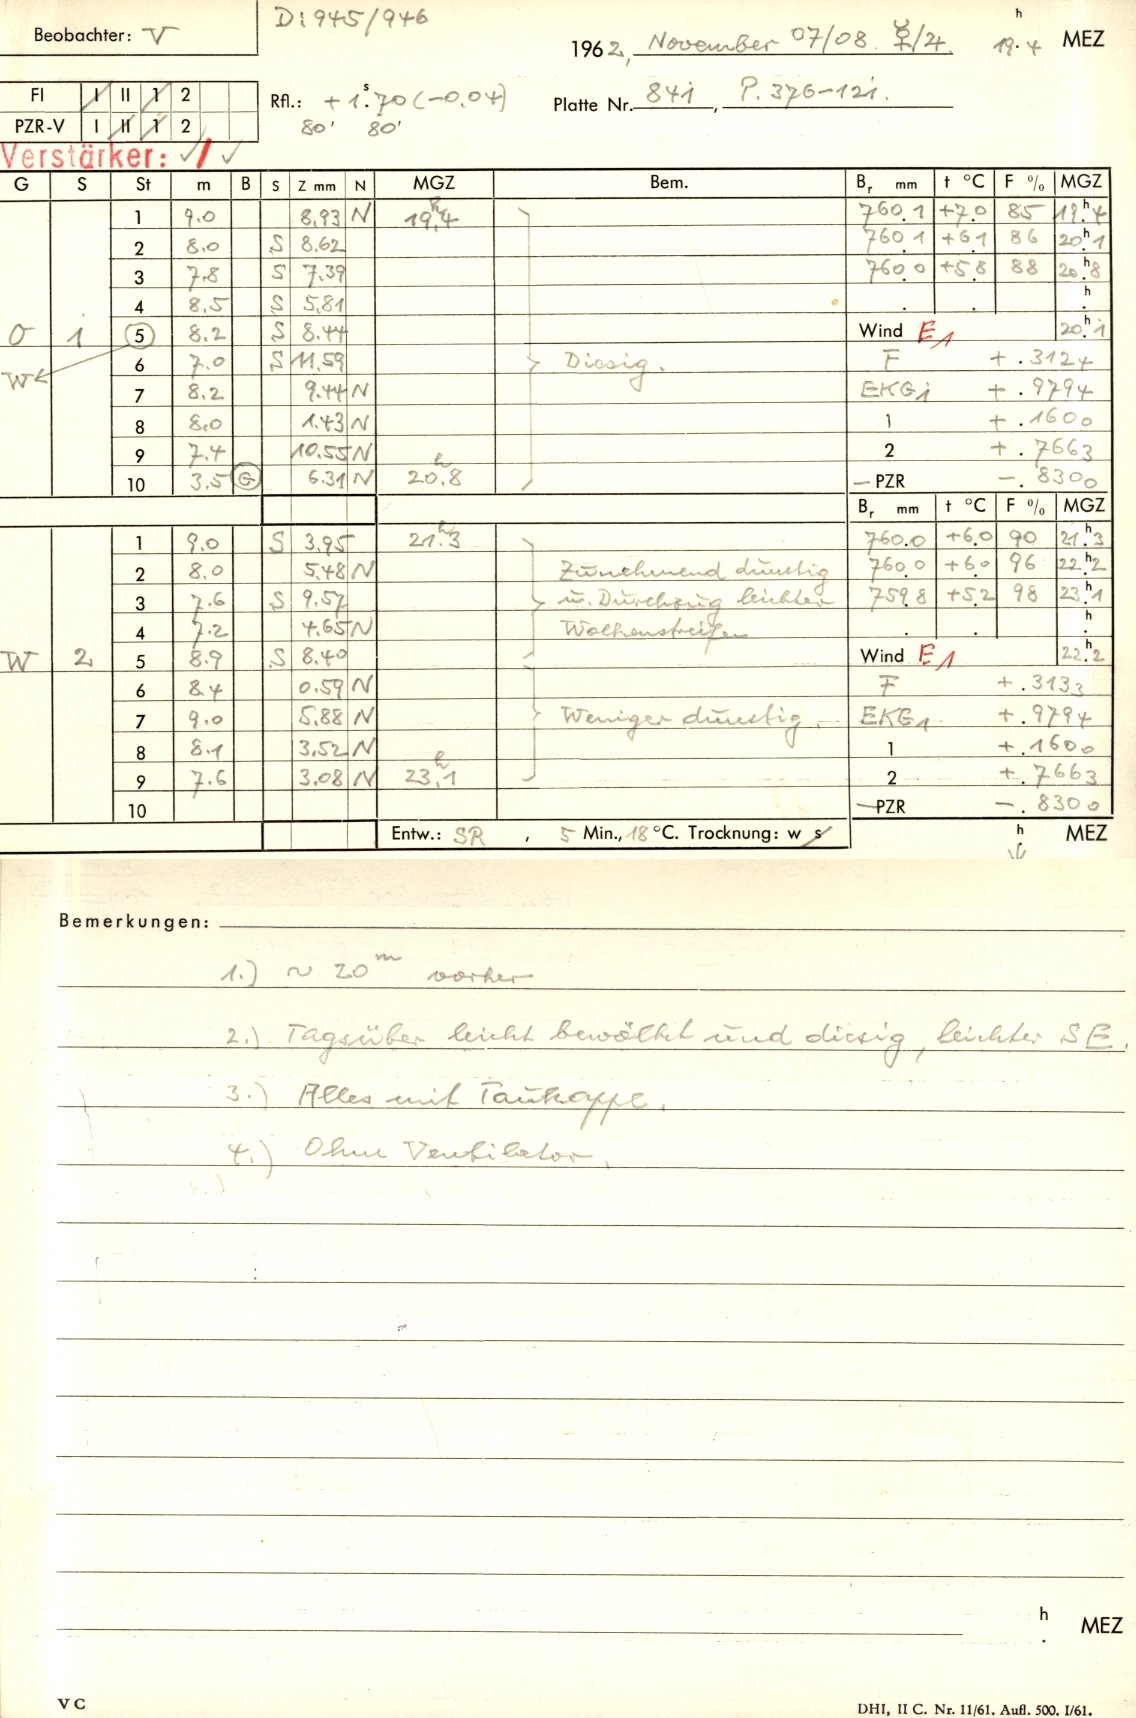 Di 945/946
Beobachter: V
1962, November 07/08. ☿/♃. 19.4 h MEZ
FI I II 1 2
PZR-V I II 1 2
Rfl.: + 1.s70 (-0.04)
80' 80'
Platte Nr. 841, P. 376-121.
Verstärker: ✓ / ✓
G S St m B S Z mm N MGZ Bem. Br mm t °C F % MGZ
1 9.0 8,93 N 19h,4 760.1 +7.0 85 19h.4
2 8.0 S 8.62 760.1 +6.1 86 20h.1
3 7.8 S 7.39 760.0 +5.8 88 20h.8
4 8.5 S 5,81 . . h.
O 1 5 8.2 S 8.44 Wind E1 20h.1
W 6 7.0 S 11.59 Diesig. F + .3124
7 8.2 9.44 N EKG1 + .9794
8 8.0 1.43 N 1 + .1600
9 7.4 10.55 N 2 + .7663
10 3.5 G 6.31 N 20h,8 — PZR — .8300
Br mm t °C F % MGZ
1 9.0 S 3.95 21h.3 760.0 +6.0 90 21h.3
2 8.0 5.48 N Zunehmend dunstig 760.0 +6.0 96 22h.2
3 7.6 S 9.57 u. Durchzug leichter 759.8 +5.2 98 23h.1
4 7.2 4.65 N Wolkenstreifen . . h.
W 2 5 8.9 S 8.40 Wind E1 22h.2
6 8.4 0.59 N F + .3133
7 9.0 5.88 N Weniger dunstig. EKG1 + .9794
8 8.1 3,52 N 1 + .1600
9 7.6 3.08 N 23h,1 2 + .7663
10 —PZR — .8300
Entw.: SR , 5 Min., 18 °C. Trocknung: w s h MEZ
Bemerkungen:
1.) ~ 20m vorher
2.) Tagsüber leicht bewölkt und diesig, leichter SE.
3.) Alles mit Taukappe.
4.) Ohne Ventilator.
h. MEZ
V C
DHI, II C. Nr. 11/61. Aufl. 500. I/61.